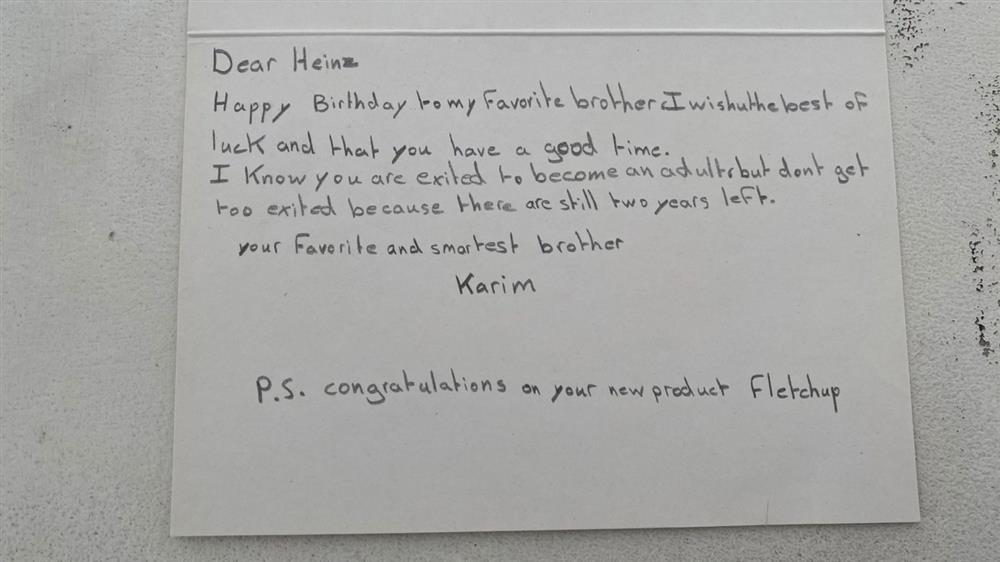 Dear Heinz
Happy Birthday to my Favorite brother. I wish u the best of
luck and that you have a good time.
I Know you are exited to become an adult, but dont get
too exited because there are still two years left.
your Favorite and smartest brother
Karim
P.S. congratulations on your new product Fletchup